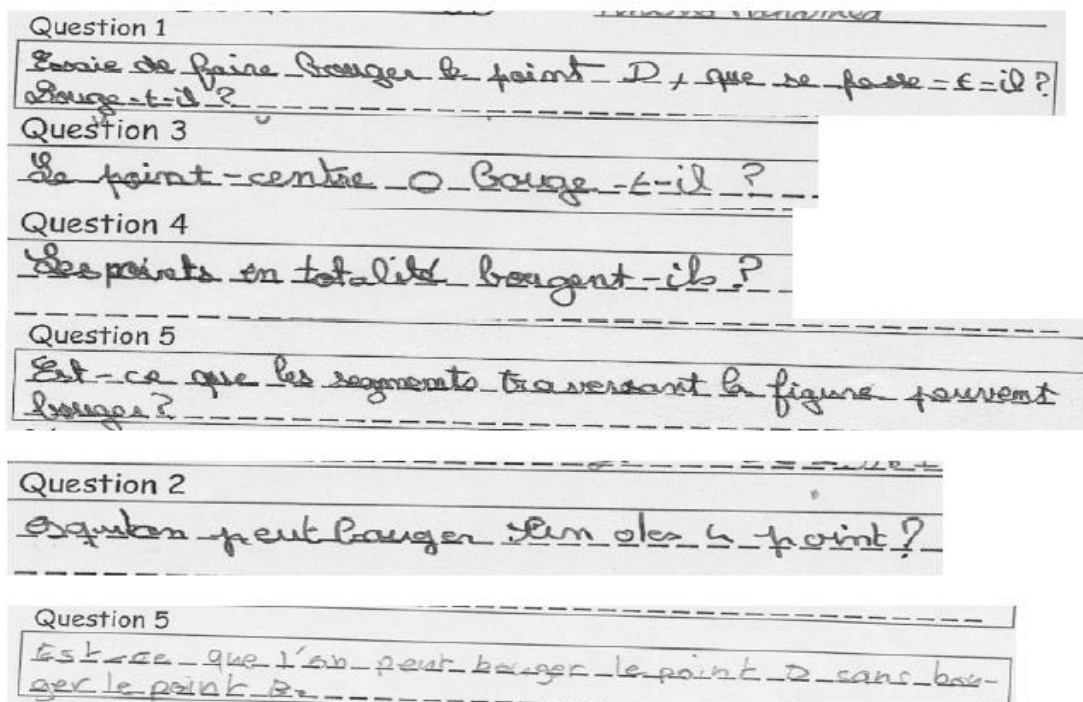 Question 1
Essaie de faire bouger le point D, que se passe-t-il ?
Bouge-t-il ?
Question 3
Le point-centre O bouge-t-il ?
Question 4
Les points en totalité bougent-ils ?
Question 5
Est-ce que les segments traversant la figure peuvent
bouger ?
Question 2
esquton peut bouger l'un des 4 point ?
Question 5
Est-ce que l'on peut bouger le point D sans bou-
ger le point B.